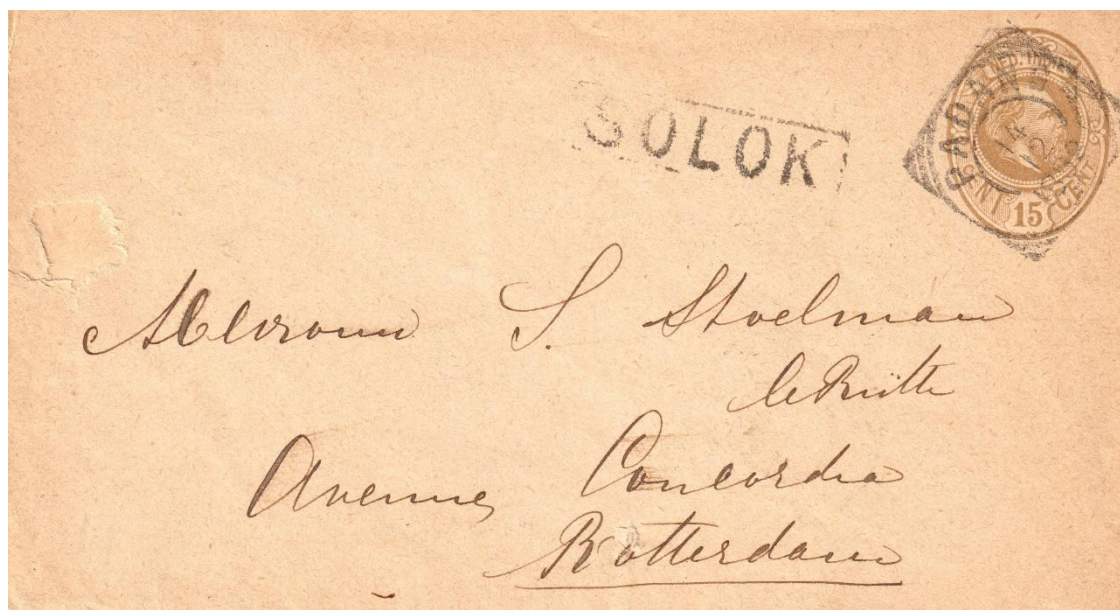 SOLOK
NED. INDIË
PADANG
14
12
15 CENT
Mevrouw S. Stoelman
le Rütte
Avenue Concordia
Rotterdam